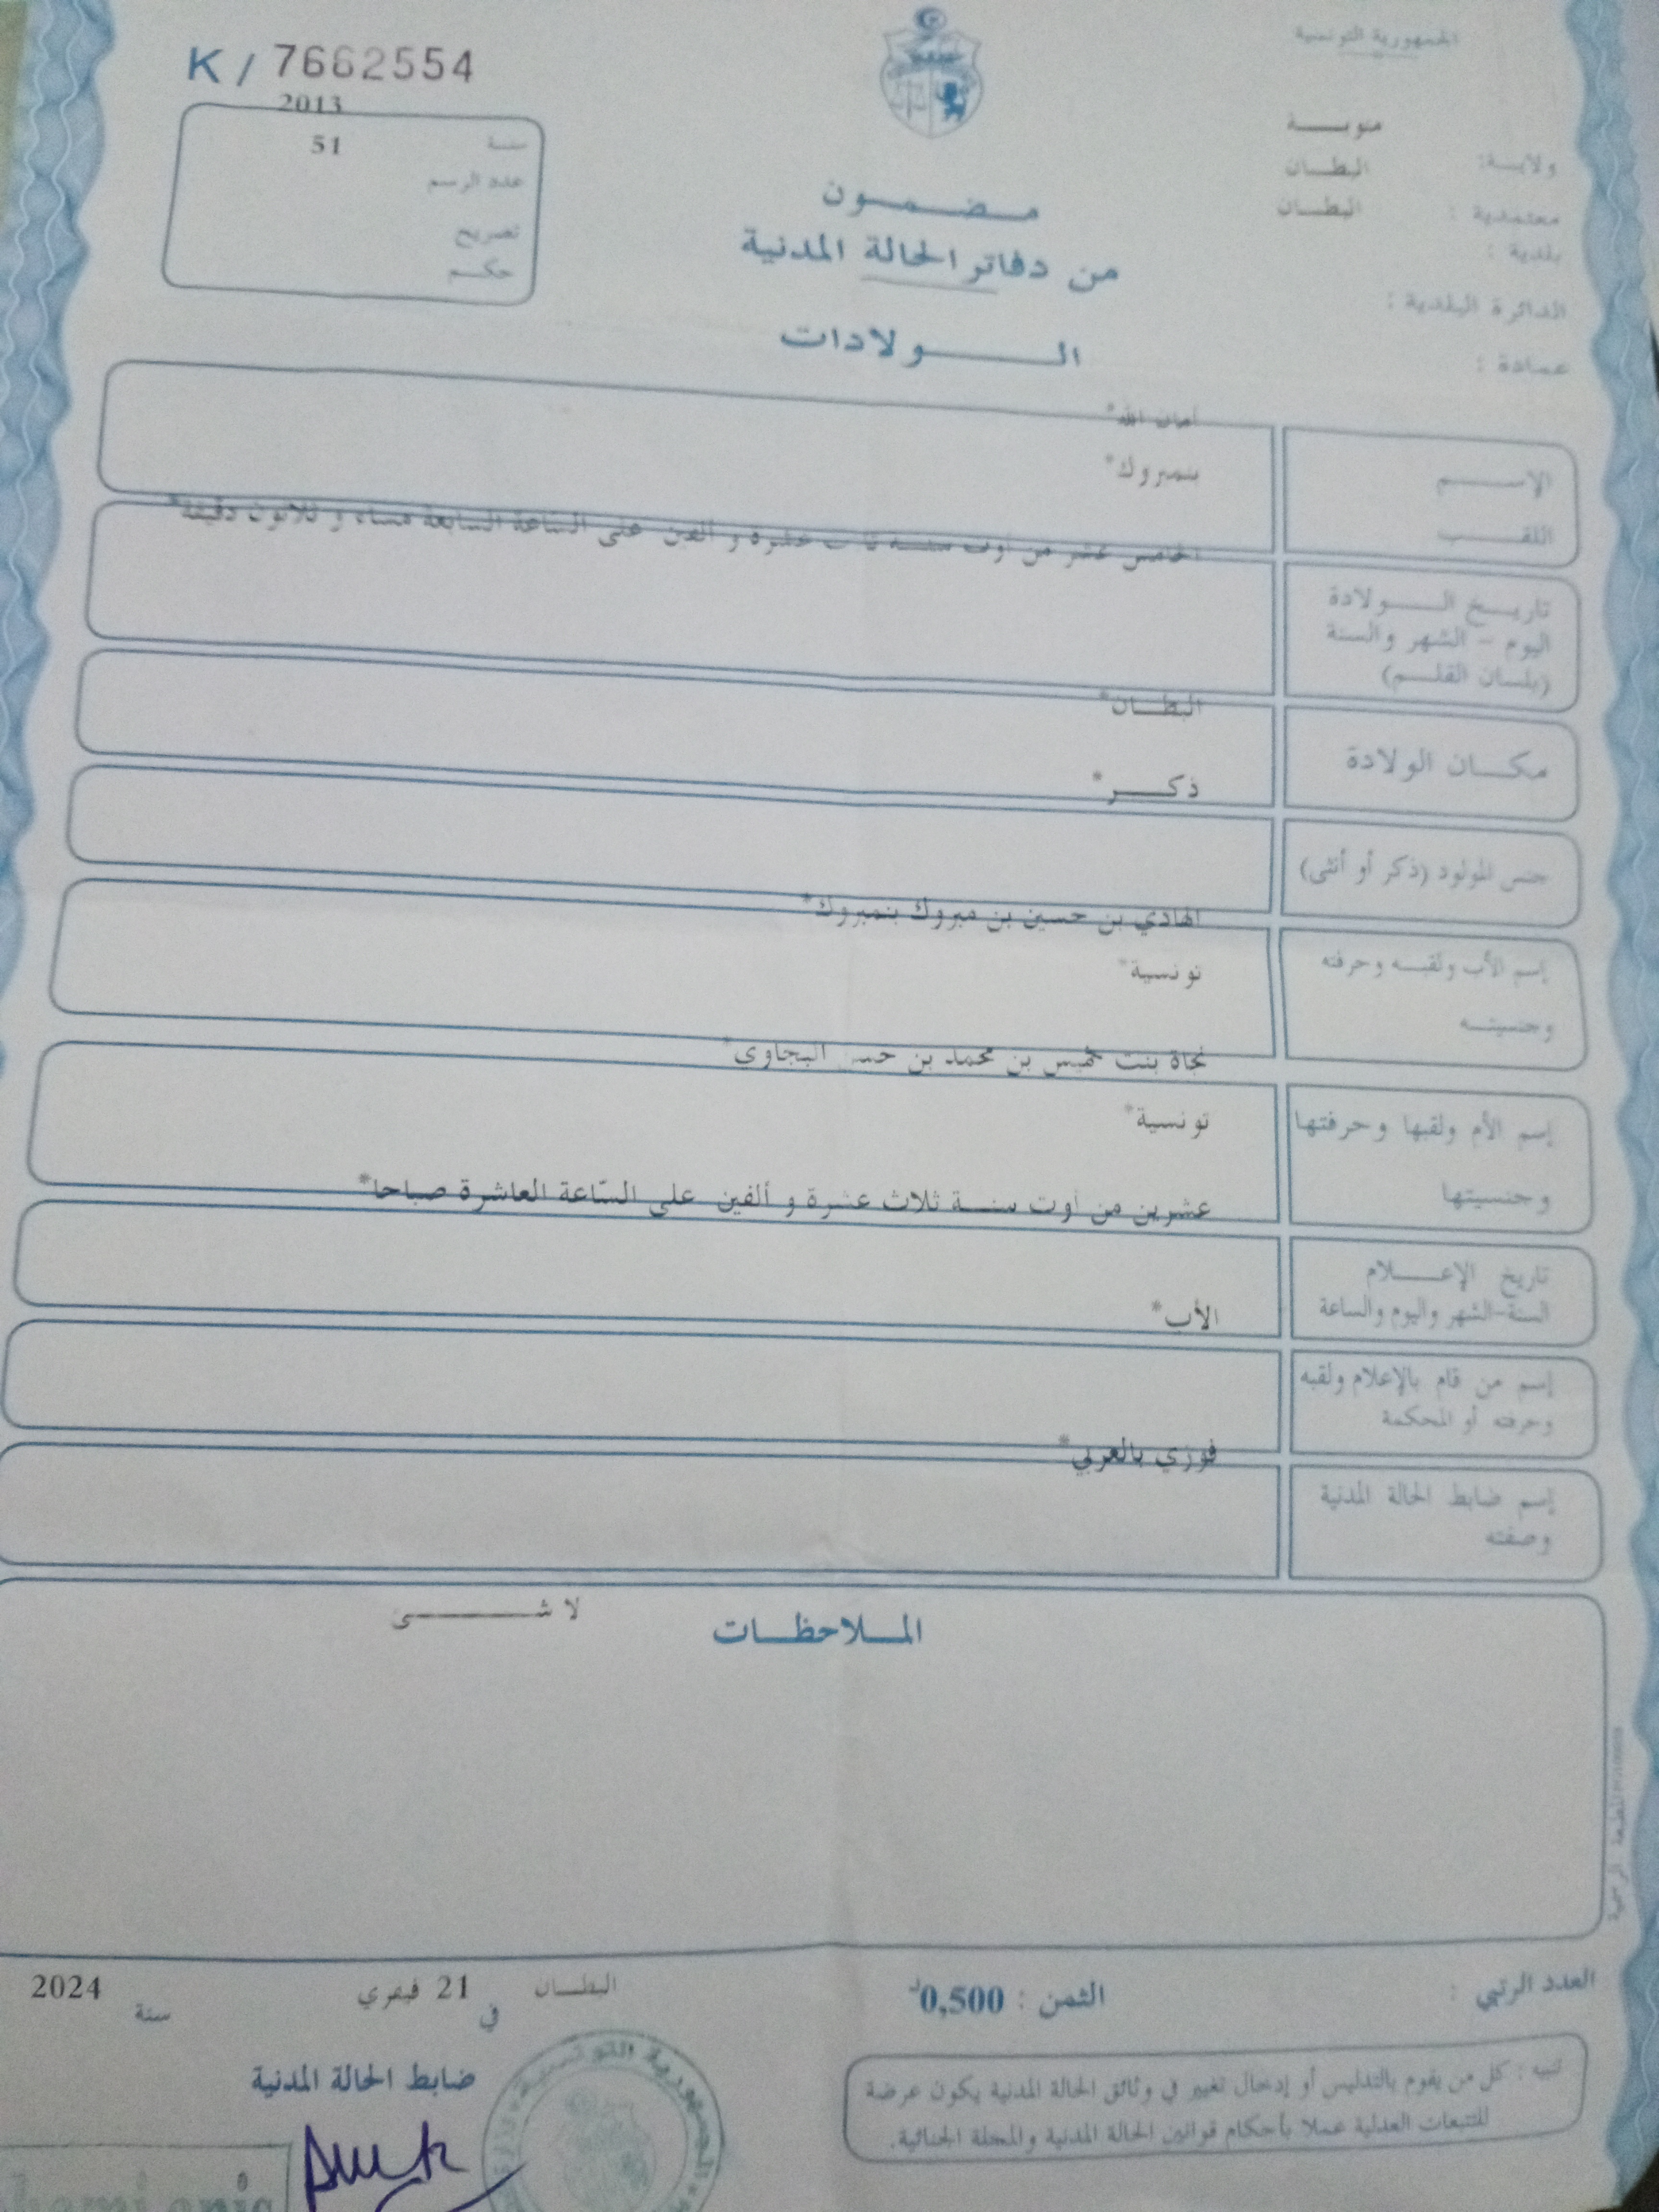 الجمهورية التونسية
K / 7662554
2013
سنة 51
عدد الرسم
تصريح
حكم
ولاية: منوبة
معتمدية : البطان
بلدية : البطان
الدائرة البلدية :
عمادة :
مضمون
من دفاتر الحالة المدنية
الولادات
أمان الله*
الاسم
بنمبروك*
اللقب
الخامس عشر من أوت سنة عشرة و ألفين على الساعة السابعة مساء و ثلاثون دقيقة*
تاريخ الولادة
اليوم - الشهر والسنة
(بلسان القلم)
البطان*
مكان الولادة
ذكر*
جنس المولود (ذكر أو أنثى)
الهادي بن حسين بن مبروك بنمبروك*
إسم الأب ولقبه وحرفته
تونسية*
وجنسيته
نجاة بنت خميس بن محمد بن البجاوي*
إسم الأم ولقبها وحرفتها
تونسية*
وجنسيتها
عشرين من أوت سنة ثلاث عشرة و ألفين على الساعة العاشرة صباحا*
تاريخ الإعلام
السنة-الشهر واليوم والساعة
الأب*
إسم من قام بالإعلام ولقبه
وحرفته أو المحكمة
فوزي بالعربي*
إسم ضابط الحالة المدنية
وصفته
الملاحظات
لا شيء
المطبعة الرسمية
العدد الرتبي :
الثمن : 0,500د
البطان في 21 فيفري سنة 2024
ضابط الحالة المدنية
تنبيه : كل من يقوم بالتدليس أو إدخال تغيير في وثائق الحالة المدنية يكون عرضة
للتتبعات العدلية عملا بأحكام قوانين الحالة المدنية والمجلة الجنائية.
الجمهورية التونسية